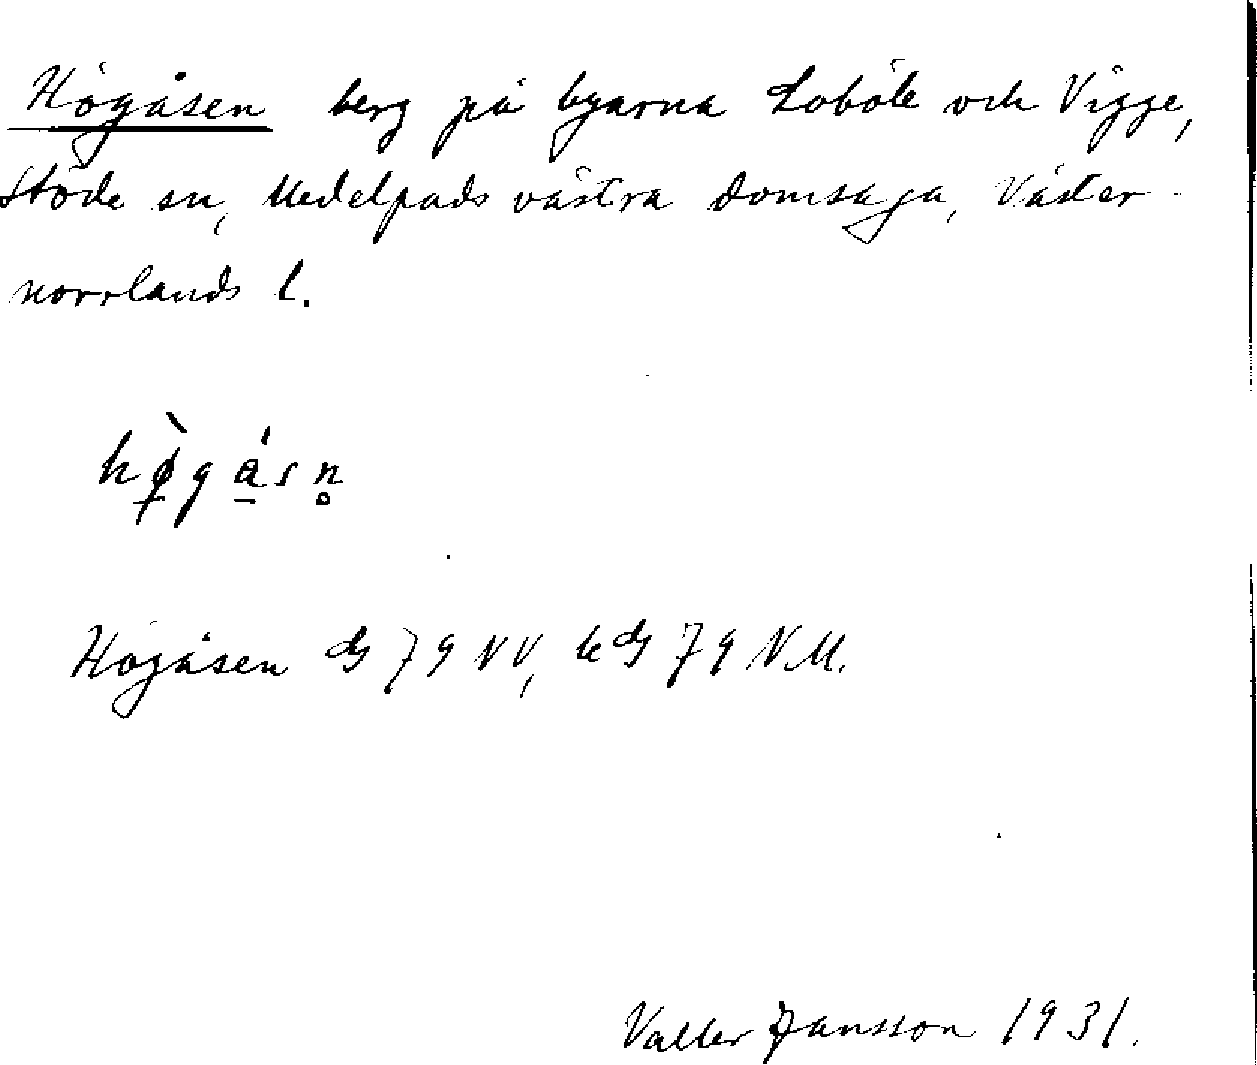 Högåsen berg på byarna Loböle och Vigge,
Stöde sn, Medelpads västra domsaga, Väster-
norrlands l.
hø̀gásn̥
Högåsen ds 79 NV, kds 79 N.M.
Valter Jansson 1931.